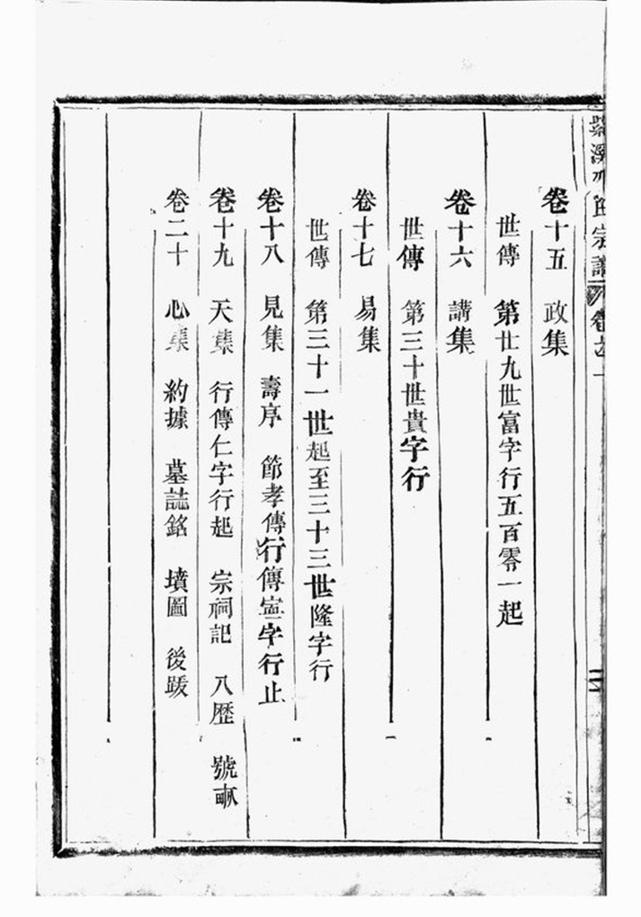 溪 宗譜 卷之一
卷十五 政集
世傳 第廿九世富字行五百零一起
卷十六 講集
世傳 第三十世貴字行
卷十七 易集
世傳 第三十一世起至三十三世隆字行
卷十八 見集 壽序 節孝傳 行傳寧字行止
卷十九 天集 行傳仁字行起 宗祠記 八歷 號畝
卷二十 心集 約據 墓誌銘 墳圖 後跋